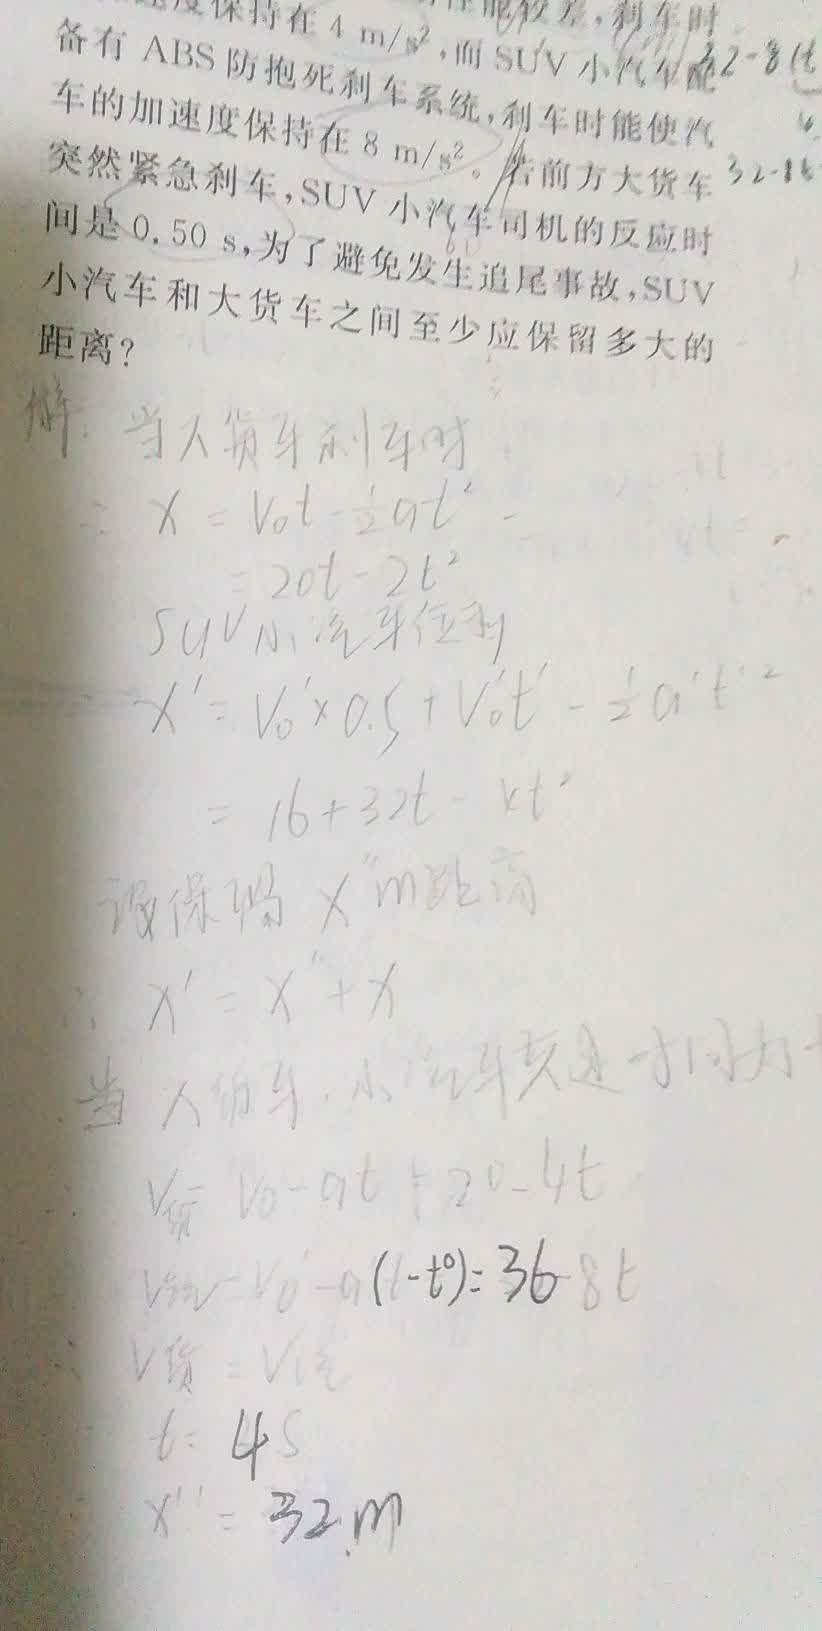 速度保持在 4 m/s²,而 SUV 小汽车配
备有 ABS 防抱死刹车系统,刹车时能使汽
车的加速度保持在 8 m/s²。若前方大货车
突然紧急刹车,SUV 小汽车司机的反应时
间是 0.50 s,为了避免发生追尾事故,SUV
小汽车和大货车之间至少应保留多大的
距离?
32-8t
解: 当大货车刹车时
∴ x = V₀t - ½at²
= 20t - 2t²
SUV小汽车位移
x' = V₀'×0.5 + V₀'t' - ½a't'²
= 16+32t - 4t²
设保留 x''m距离
∴ x' = x'' + x
当大货车、小汽车共速时间为t
V货 = V₀-at = 20-4t
V汽 = V₀'-a(t-t⁰)=36-8t
∴ V货 = V汽
t = 4s
x'' = 32m